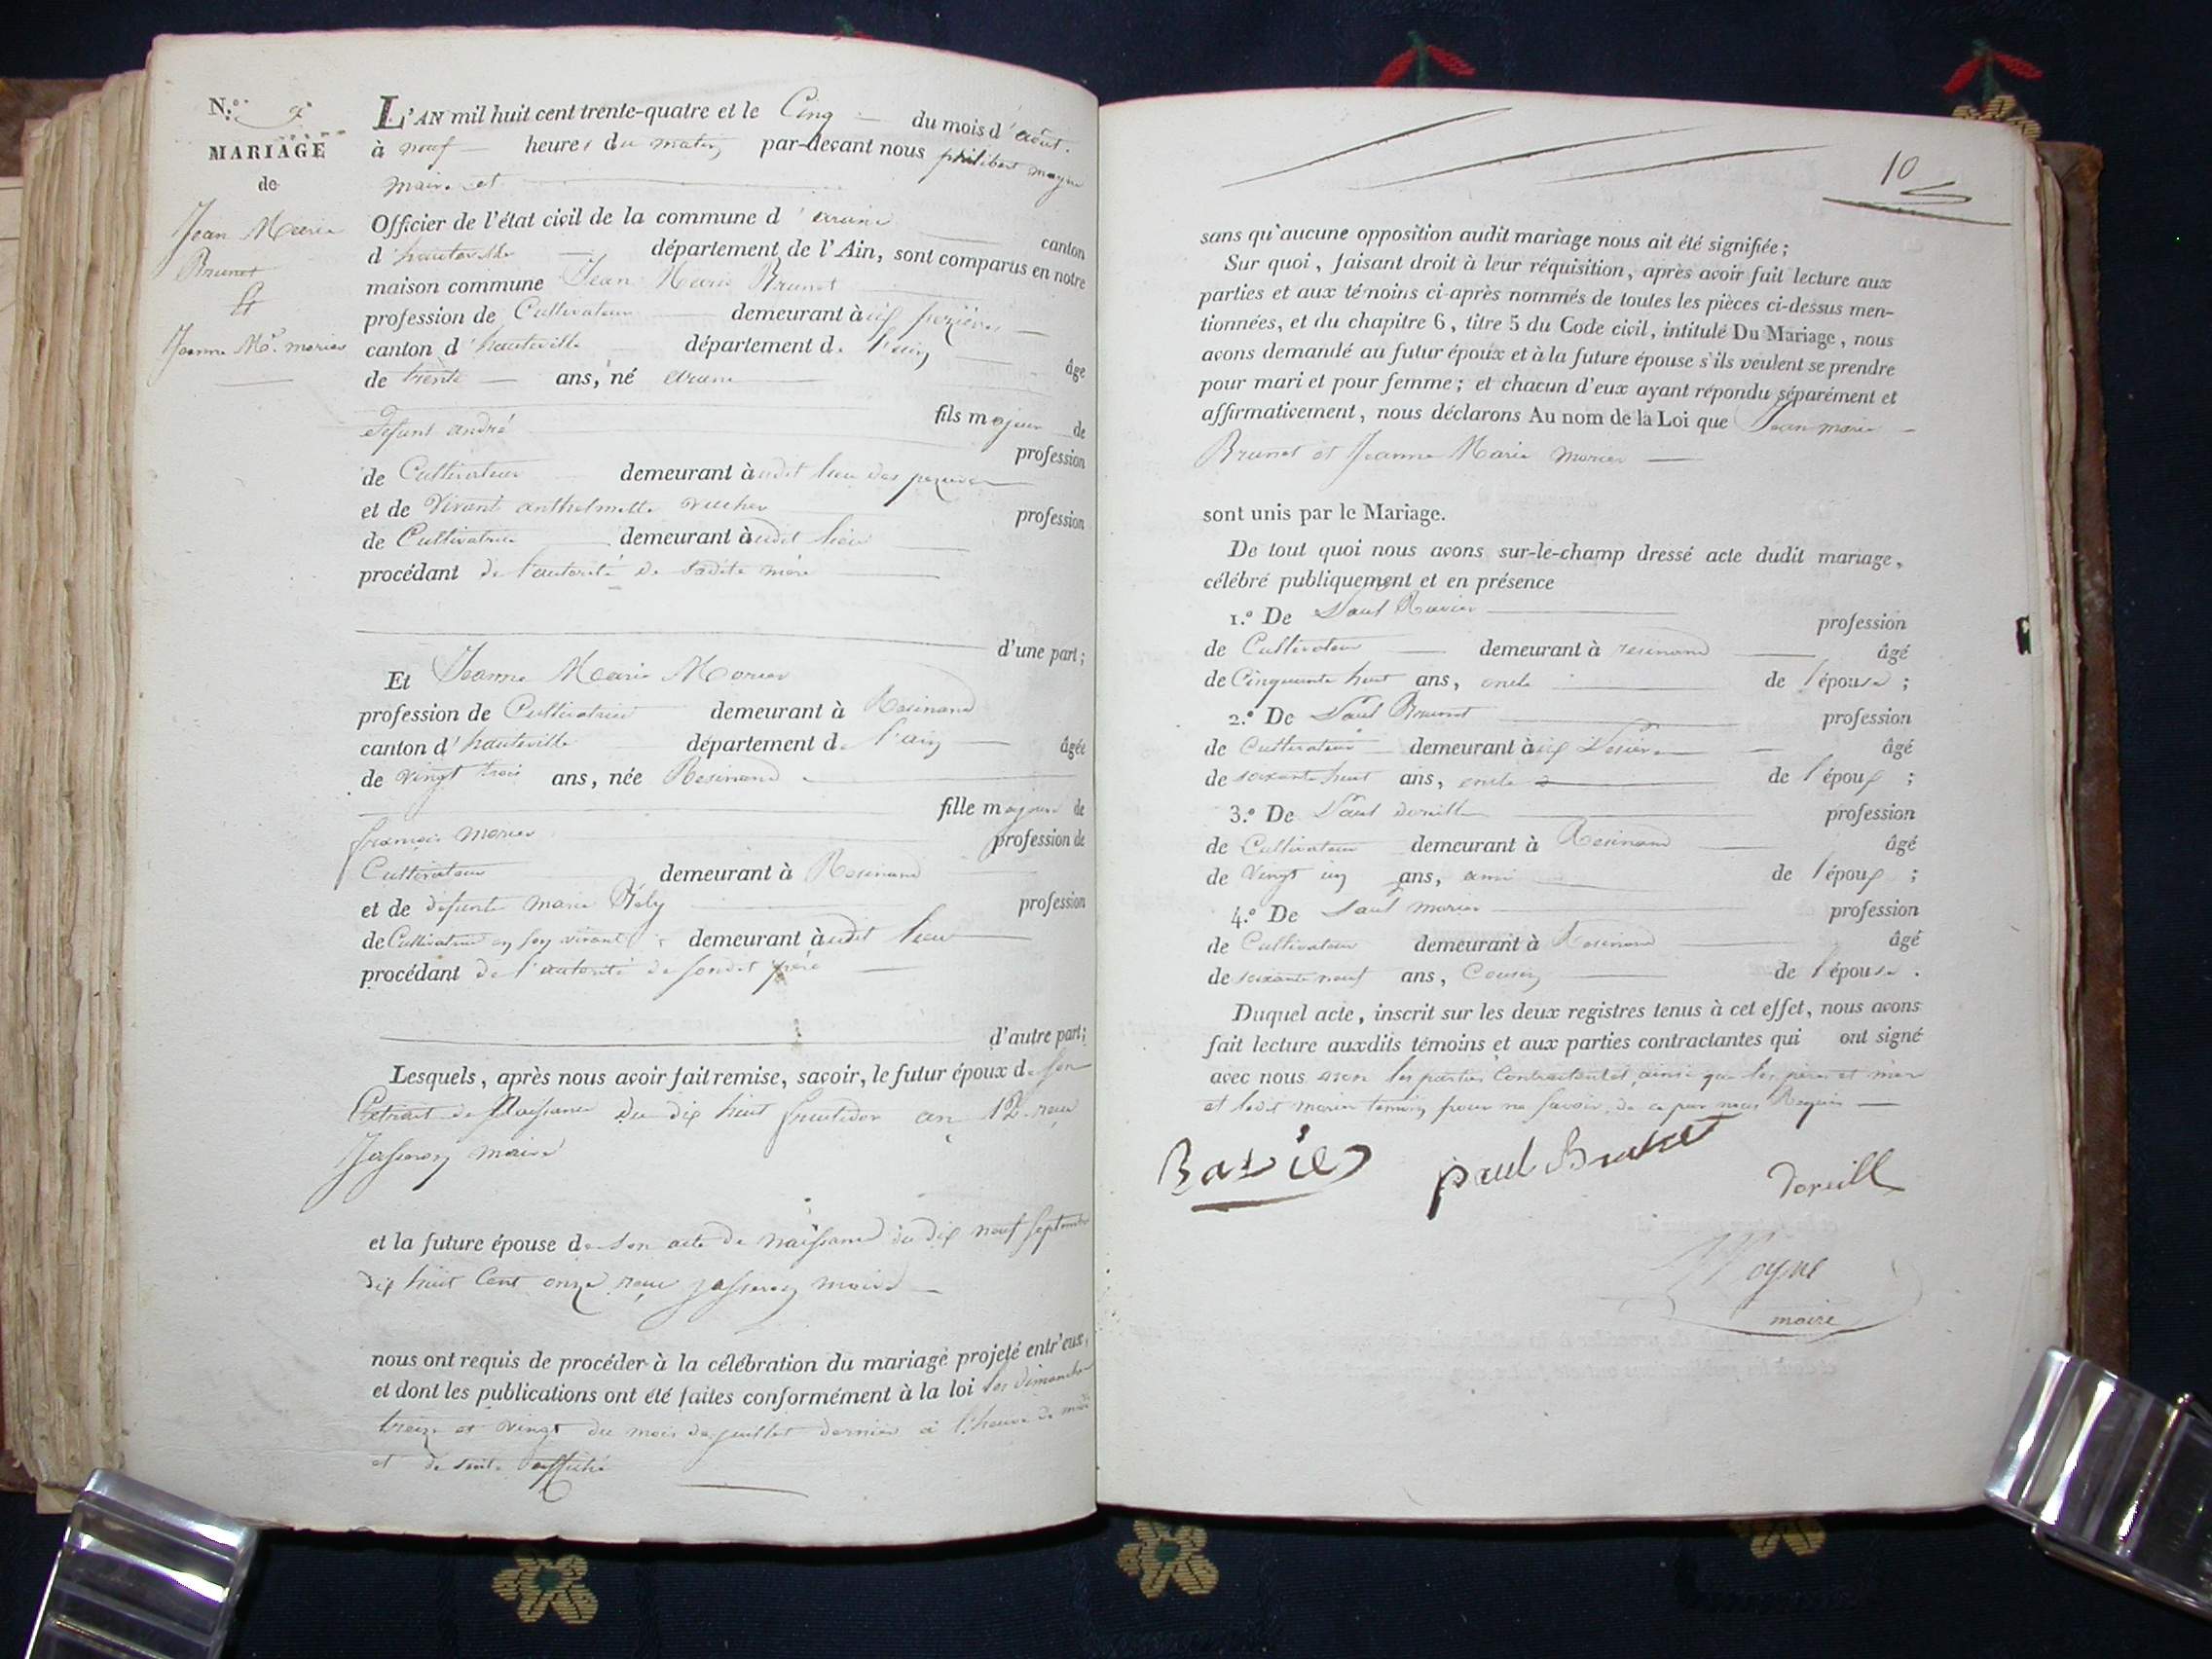 N.º 9
MARIAGE
de
Jean Marie
Brunet
Et
Jeanne M.e morier
L'AN mil huit cent trente-quatre et le Cinq du mois d'août
à neuf heures du matin par-devant nous philibert moyne
maire et
Officier de l'état civil de la commune d'arane canton
d'hauteville département de l'Ain, sont comparus en notre
maison commune Jean Marie Brunet
profession de Cultivateur demeurant à
canton d'hauteville département de l'ain âgé
de trente ans, né arane
fils majeur de
défunt andré profession
de Cultivateur demeurant audit lieu des
et de vivante anthelmette profession
de Cultivatrice demeurant audit lieu
procédant de l'autorité de sadite mère
d'une part;
Et Jeanne Marie Morier
profession de Cultivatrice demeurant à Resinand
canton d'hauteville département de l'ain âgée
de vingt trois ans, née Resinand
fille majeure de
françois morier profession de
Cultivateur demeurant à Resinand
et de défunte marie profession
de Cultivatrice en son vivant demeurant audit lieu
procédant de l'autorité de sondit père
d'autre part;
Lesquels, après nous avoir fait remise, savoir, le futur époux de son
Extrait de Naissance du dix huit fructidor an 12 reçu
Jasseron maire
et la future épouse de son acte de naissance du dix neuf septembre
dix huit Cent onze reçu jasseron maire
nous ont requis de procéder à la célébration du mariage projeté entr'eux,
et dont les publications ont été faites conformément à la loi les dimanches
treize et vingt du mois de juillet dernier à l'heure de midi
et de suite affiché
10
sans qu'aucune opposition audit mariage nous ait été signifiée;
Sur quoi, faisant droit à leur réquisition, après avoir fait lecture aux
parties et aux témoins ci-après nommés de toutes les pièces ci-dessus men-
tionnées, et du chapitre 6, titre 5 du Code civil, intitulé Du Mariage, nous
avons demandé au futur époux et à la future épouse s'ils veulent se prendre
pour mari et pour femme; et chacun d'eux ayant répondu séparément et
affirmativement, nous déclarons Au nom de la Loi que Jean marie
Brunet et Jeanne Marie morier
sont unis par le Mariage.
De tout quoi nous avons sur-le-champ dressé acte dudit mariage,
célébré publiquement et en présence
1.º De Paul Ravier profession
de Cultivateur demeurant à resinand âgé
de Cinquante huit ans, oncle de l'épouse;
2.º De Paul Brunet profession
de Cultivateur demeurant âgé
de soixante huit ans, oncle de l'époux;
3.º De Paul profession
de Cultivateur demeurant à Resinand âgé
de vingt un ans, ami de l'époux;
4.º De Paul morier profession
de Cultivateur demeurant à Resinand âgé
de soixante neuf ans, Cousin de l'épouse.
Duquel acte, inscrit sur les deux registres tenus à cet effet, nous avons
fait lecture auxdits témoins et aux parties contractantes qui ont signé
avec nous non les parties Contractantes, ainsi que les père et mère
et ledit morier temoin pour ne savoir, de ce par nous Requis
Ravier paul Brunet
Moyne
maire